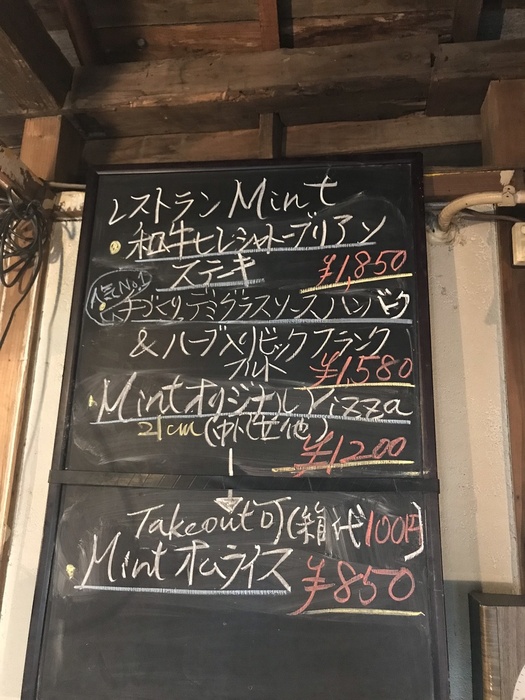 レストランMint
和牛ヒレシャトーブリアン
ステーキ ¥1,850
人気No.1
手づくりデミグラスソースハンバーグ
&ハーブ入りビックフランク
フルト ¥1,580
MintオリジナルPizza
21cm ¥1200
Takeout可(箱代100円)
Mintオムライス ¥850